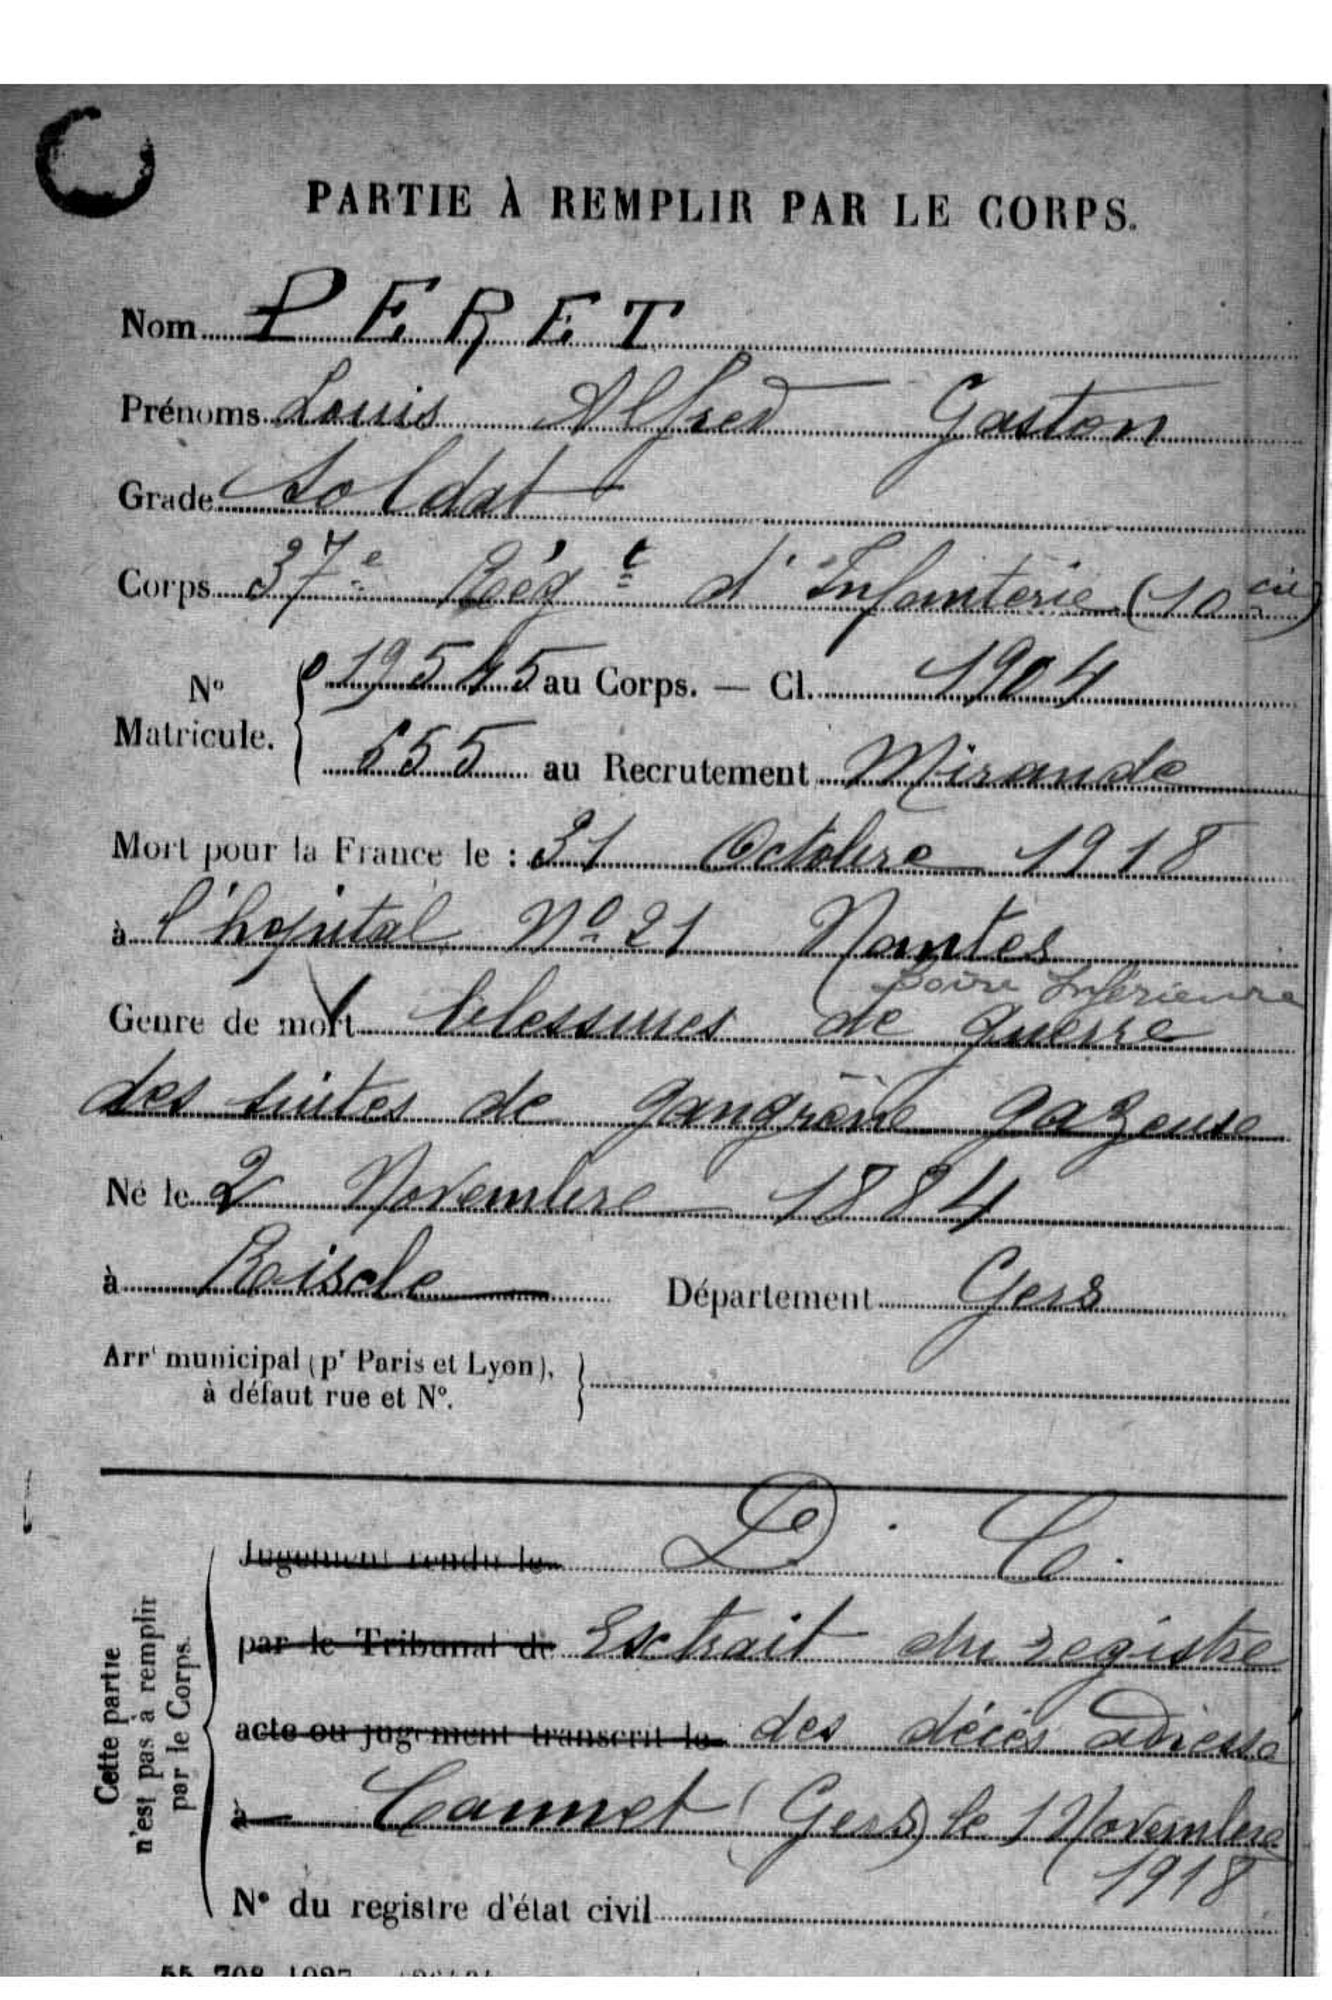 PARTIE À REMPLIR PAR LE CORPS.
Nom PERET
Prénoms Louis Alfred Gaston
Grade Soldat
Corps 37e Régt d'Infanterie (10 cie)
No Matricule. 19545 au Corps. — Cl. 1904
655 au Recrutement Mirande
Mort pour la France le : 31 Octobre 1918
à l'hopital No 21 Nantes
Loire Inférieure
Genre de mort blessures de guerre
des suites de gangrène gazeuse
Né le 2 Novembre 1884
à Riscle Département Gers
Arrt municipal (pr Paris et Lyon),
à défaut rue et No.
Cette partie
n'est pas à remplir
par le Corps.
Jugement rendu le D. C.
par le Tribunal de Extrait du registre
acte ou jugement transcrit le des décès adressé
à Cannet (Gers) le 1 Novembre
1918
No du registre d'état civil